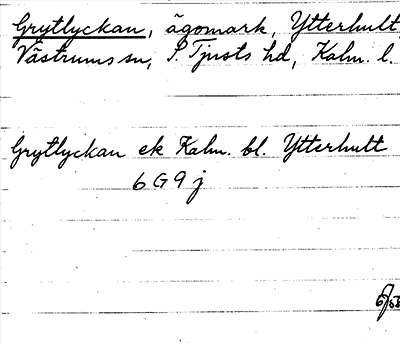 Grytlyckan, ägomark, Ytterhult
Västrums sn, S. Tjusts hd, Kalm. l.
Grytlyckan ek Kalm. bl. Ytterhult
6 G 9 j